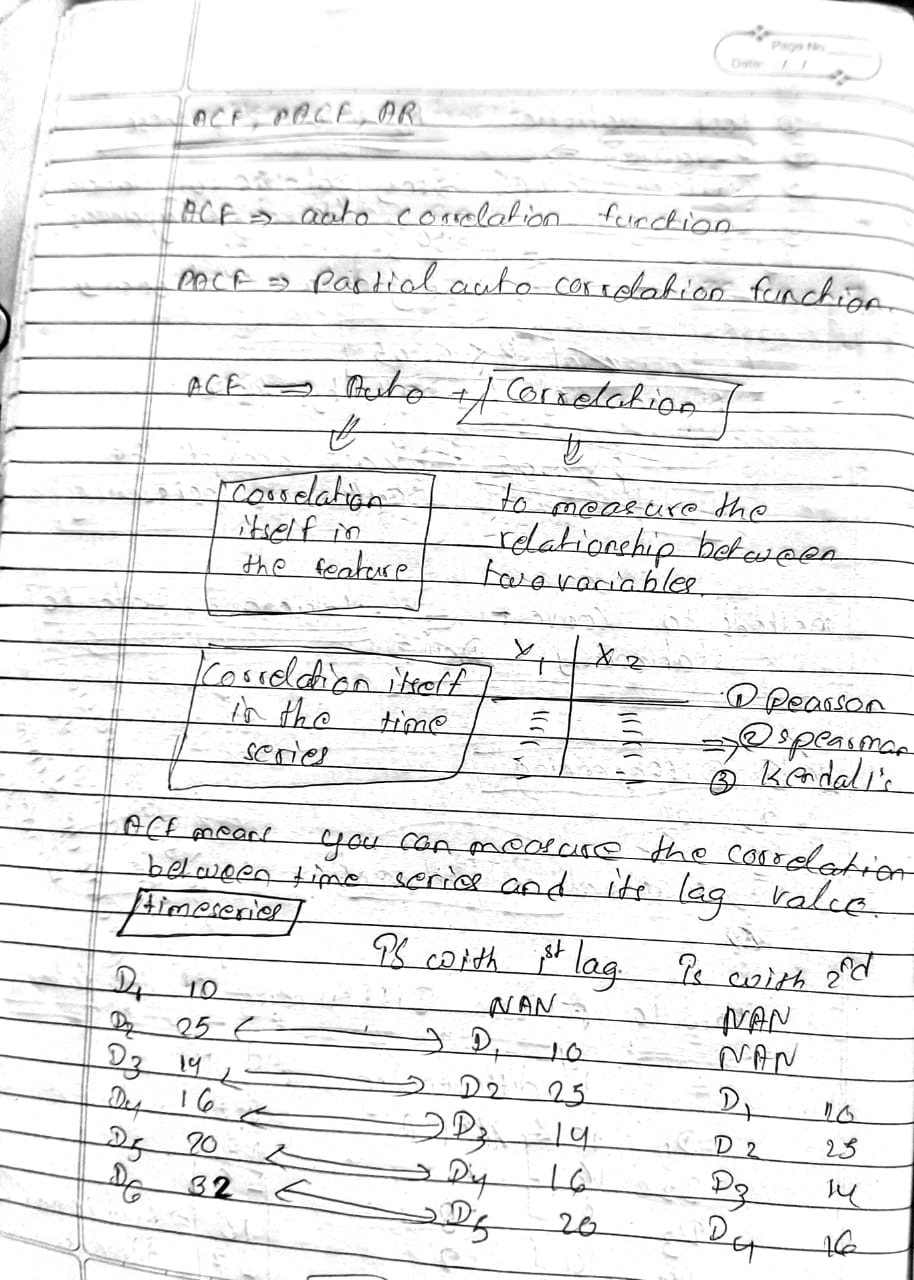 Page No.
Date / /
ACF, PACF, AR
ACF ⇒ auto correlation function
PACF ⇒ Partial auto correlation function.
ACF ⇒ Auto + Correlation
Correlation
itself in
the feature
to measure the
relationship between
two variables.
X1 X2
Correlation itself
in the time
series
① Pearson
⇒ ② spearman
③ Kendall's
ACF means you can measure the correlation
between time series and its lag value.
timeseries
TS with 1st lag. Ts with 2nd
D1 10 NAN NAN
D2 25 D1 10 NAN
D3 14 D2 25 D1 10
D4 16 D3 14 D2 25
D5 20 D4 16 D3 14
D6 32 D5 20 D4 16